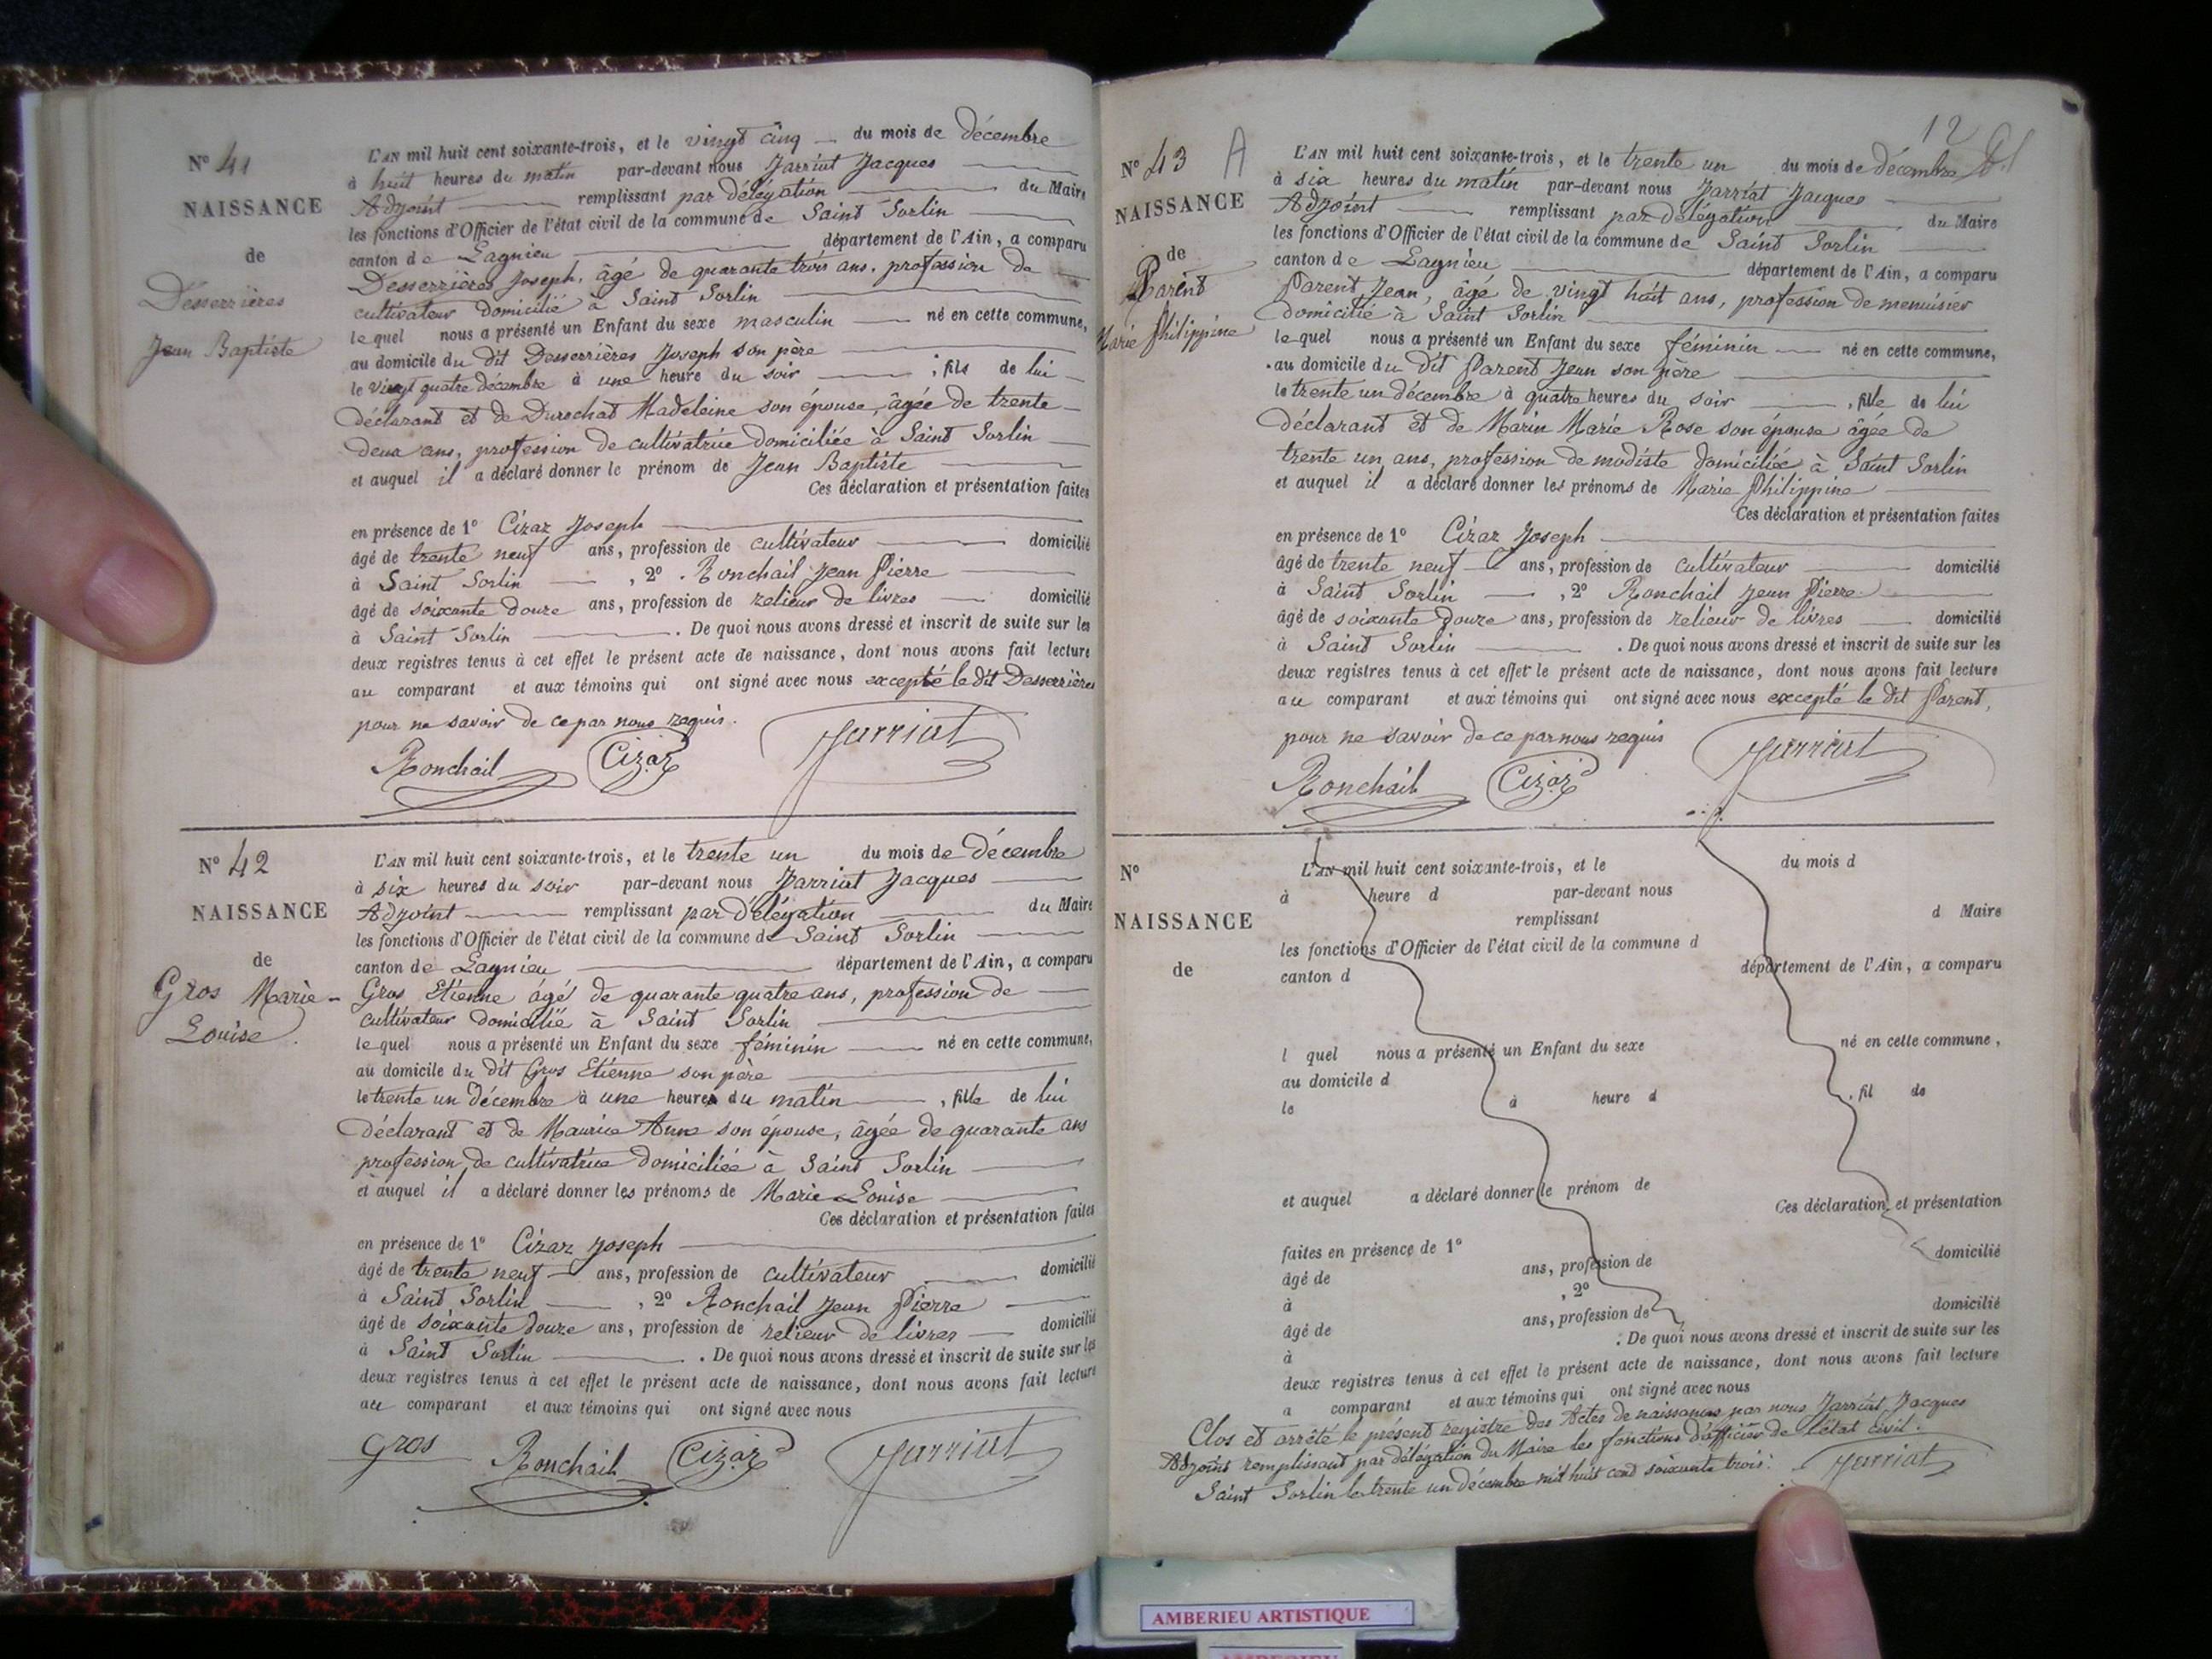 N° 41
NAISSANCE
de
Desserrières
Jean Baptiste
L'AN mil huit cent soixante-trois, et le vingt cinq du mois de décembre
à huit heures du matin par-devant nous Jarriat Jacques
Adjoint remplissant par délégation du Maire
les fonctions d'Officier de l'état civil de la commune de Saint Sorlin
canton de Lagnieu département de l'Ain, a comparu
Desserrières Joseph, âgé de quarante trois ans, profession de
cultivateur domicilié à Saint Sorlin
lequel nous a présenté un Enfant du sexe masculin né en cette commune,
au domicile du dit Desserrières Joseph son père
le vingt quatre décembre à une heure du soir , fils de lui
déclarant et de Durochat Madeleine son épouse, âgée de trente
deux ans, profession de cultivatrice domiciliée à Saint Sorlin
et auquel il a déclaré donner le prénom de Jean Baptiste
Ces déclaration et présentation faites
en présence de 1° Cizaz Joseph
âgé de trente neuf ans, profession de cultivateur domicilié
à Saint Sorlin , 2° Ronchail Jean Pierre
âgé de soixante douze ans, profession de relieur de livres domicilié
à Saint Sorlin . De quoi nous avons dressé et inscrit de suite sur les
deux registres tenus à cet effet le présent acte de naissance, dont nous avons fait lecture
au comparant et aux témoins qui ont signé avec nous excepté le dit Desserrières
pour ne savoir de ce par nous requis.
Ronchail Cizaz Jarriat
N° 42
NAISSANCE
de
Gros Marie-
Louise
L'AN mil huit cent soixante-trois, et le trente un du mois de décembre
à six heures du soir par-devant nous Jarriat Jacques
Adjoint remplissant par délégation du Maire
les fonctions d'Officier de l'état civil de la commune de Saint Sorlin
canton de Lagnieu département de l'Ain, a comparu
Gros Etienne âgé de quarante quatre ans, profession de
cultivateur domicilié à Saint Sorlin
lequel nous a présenté un Enfant du sexe féminin né en cette commune,
au domicile du dit Gros Etienne son père
le trente un décembre à une heure du matin , fille de lui
déclarant et de Maurice Anne son épouse, âgée de quarante ans
profession de cultivatrice domiciliée à Saint Sorlin
et auquel il a déclaré donner les prénoms de Marie Louise
Ces déclaration et présentation faites
en présence de 1° Cizaz Joseph
âgé de trente neuf ans, profession de cultivateur domicilié
à Saint Sorlin , 2° Ronchail Jean Pierre
âgé de soixante douze ans, profession de relieur de livres domicilié
à Saint Sorlin . De quoi nous avons dressé et inscrit de suite sur les
deux registres tenus à cet effet le présent acte de naissance, dont nous avons fait lecture
au comparant et aux témoins qui ont signé avec nous
Gros Ronchail Cizaz Jarriat
12
N° 43 A
NAISSANCE
de
Parent
Marie Philippine
L'AN mil huit cent soixante-trois, et le trente un du mois de décembre
à six heures du matin par-devant nous Jarriat Jacques
Adjoint remplissant par délégation du Maire
les fonctions d'Officier de l'état civil de la commune de Saint Sorlin
canton de Lagnieu département de l'Ain, a comparu
Parent Jean, âgé de vingt huit ans, profession de menuisier
domicilié à Saint Sorlin
lequel nous a présenté un Enfant du sexe féminin né en cette commune,
au domicile du dit Parent Jean son père
le trente un décembre à quatre heures du soir , fille de lui
déclarant et de Marin Marie Rose son épouse âgée de
trente un ans, profession de modiste domiciliée à Saint Sorlin
et auquel il a déclaré donner les prénoms de Marie Philippine
Ces déclaration et présentation faites
en présence de 1° Cizaz Joseph
âgé de trente neuf ans, profession de cultivateur domicilié
à Saint Sorlin , 2° Ronchail Jean Pierre
âgé de soixante douze ans, profession de relieur de livres domicilié
à Saint Sorlin . De quoi nous avons dressé et inscrit de suite sur les
deux registres tenus à cet effet le présent acte de naissance, dont nous avons fait lecture
au comparant et aux témoins qui ont signé avec nous excepté le dit Parent,
pour ne savoir de ce par nous requis
Ronchail Cizaz Jarriat
N°
NAISSANCE
de
L'AN mil huit cent soixante-trois, et le du mois d
à heure d par-devant nous
remplissant d Maire
les fonctions d'Officier de l'état civil de la commune d
canton d département de l'Ain, a comparu
l quel nous a présenté un Enfant du sexe né en cette commune,
au domicile d
le à heure d , fil de
et auquel a déclaré donner le prénom de
Ces déclaration et présentation
faites en présence de 1°
âgé de ans, profession de domicilié
à , 2°
âgé de ans, profession de domicilié
à . De quoi nous avons dressé et inscrit de suite sur les
deux registres tenus à cet effet le présent acte de naissance, dont nous avons fait lecture
a comparant et aux témoins qui ont signé avec nous
Clos et arrêté le présent registre des Actes de naissances par nous Jarriat Jacques
Adjoint remplissant par délégation du Maire les fonctions d'officier de l'état civil.
Saint Sorlin le trente un décembre mil huit cent soixante trois. Jarriat
AMBERIEU ARTISTIQUE
AMBERIEU